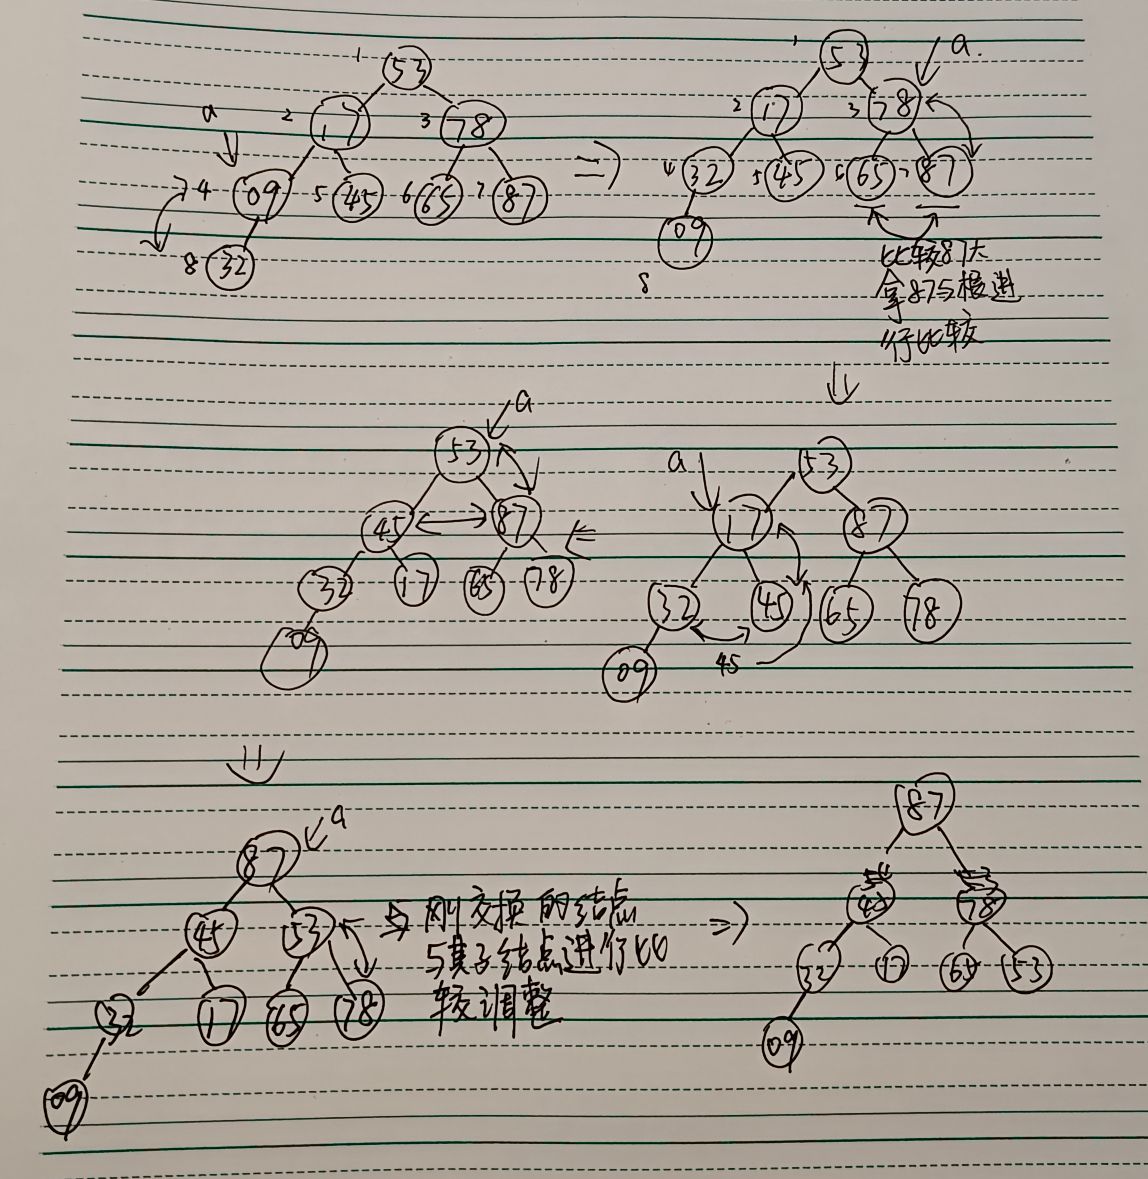 1 53
a 2 17 3 78
4 09 5 45 6 65 7 87
8 32
1 53 a.
2 17 3 78
4 32 5 45 6 65 7 87
09
8
比较87大
拿87与根进
行比较
53 a
45 87
32 17 65 78
09
a 53
17 87
32 45 65 78
09 45
87 a
45 53
32 17 65 78
09
与刚交换的结点
与其子结点进行比
较调整
87
78
32 17 65 53
09